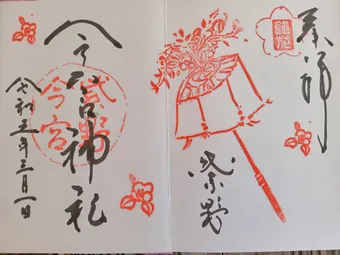 奉拝
紫野
今宮神社
今宮
令和五年三月一日